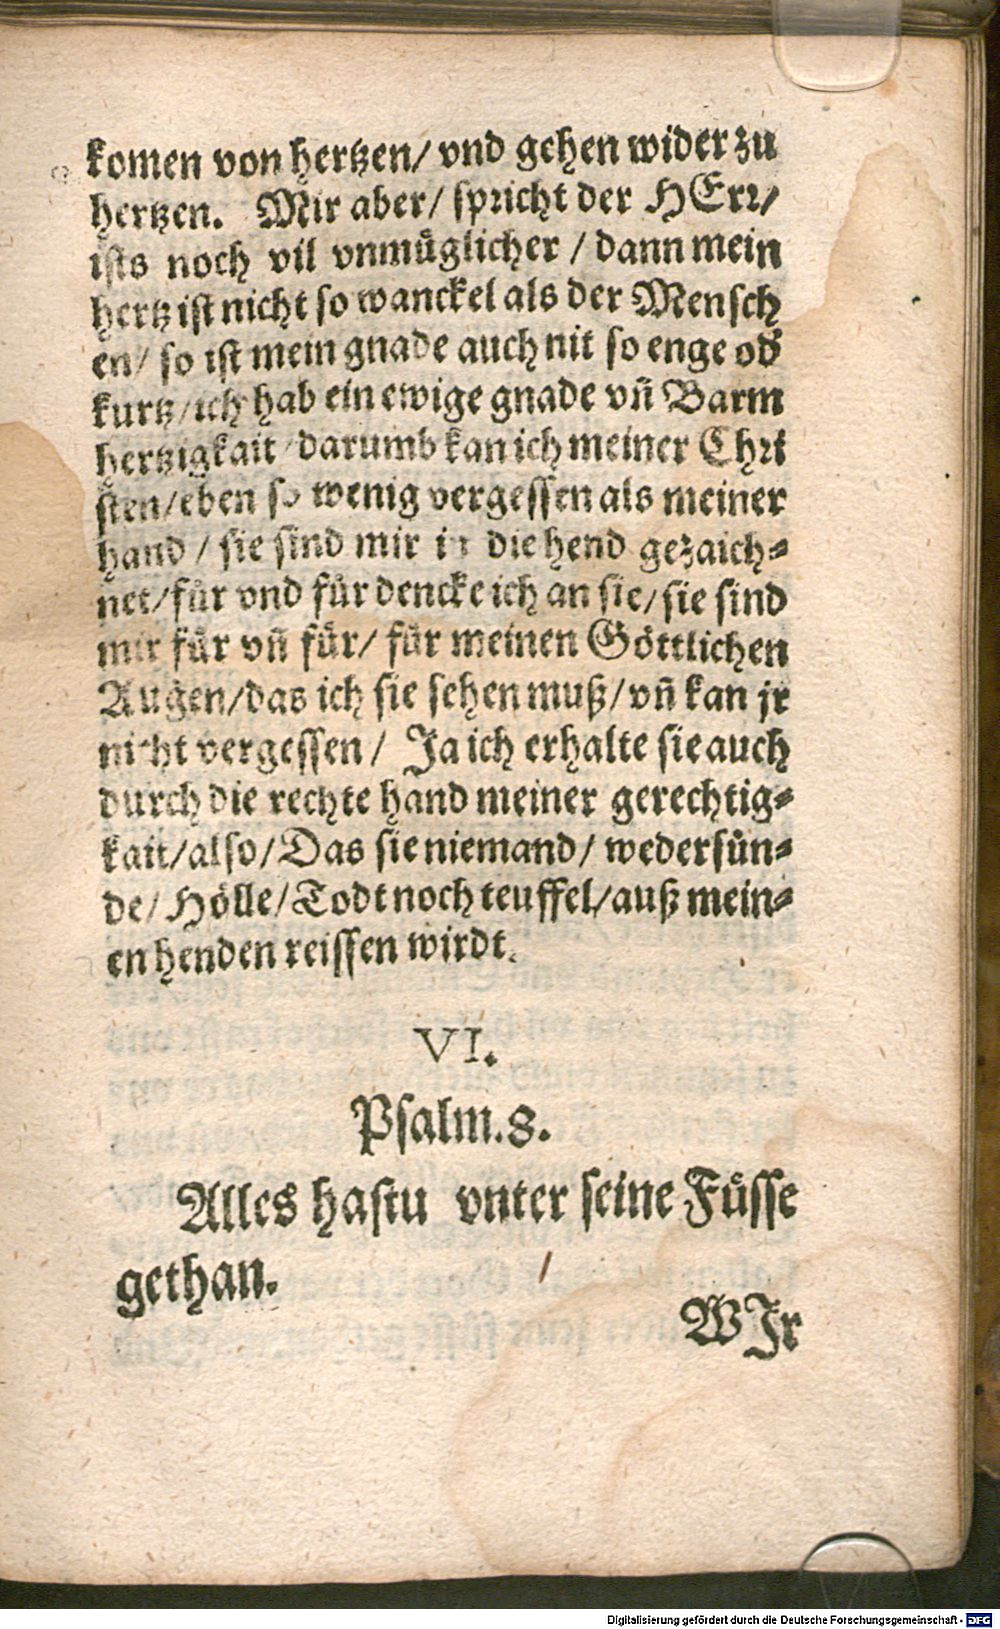 komen von hertzen/ vnd gehen wider zu
hertzen. Mir aber/ spricht der HErr/
ists noch vil vnmüglicher / dann mein
hertz ist nicht so wanckel als der Mensch
en/ so ist mein gnade auch nit so enge od̕
kurtz/ich hab ein ewige gnade vñ Barm
hertzigkait/darumb kan ich meiner Chri
sten/eben so wenig vergessen als meiner
hand / sie sind mir in die hend gezaich⸗
net/für vnd für dencke ich an sie/sie sind
mir für vñ für/ für meinen Göttlichen
Augen/das ich sie sehen muß/vñ kan jr
nicht vergessen/ Ja ich erhalte sie auch
durch die rechte hand meiner gerechtig⸗
kait/also/Das sie niemand/ weder sün⸗
de/ Hölle/Todt noch teuffel/auß mein⸗
en henden reissen wirdt.
VI.
Psalm.8.
Alles hastu vnter seine Füsse
gethan.
WJr
Digitalisierung gefördert durch die Deutsche Forschungsgemeinschaft - DFG